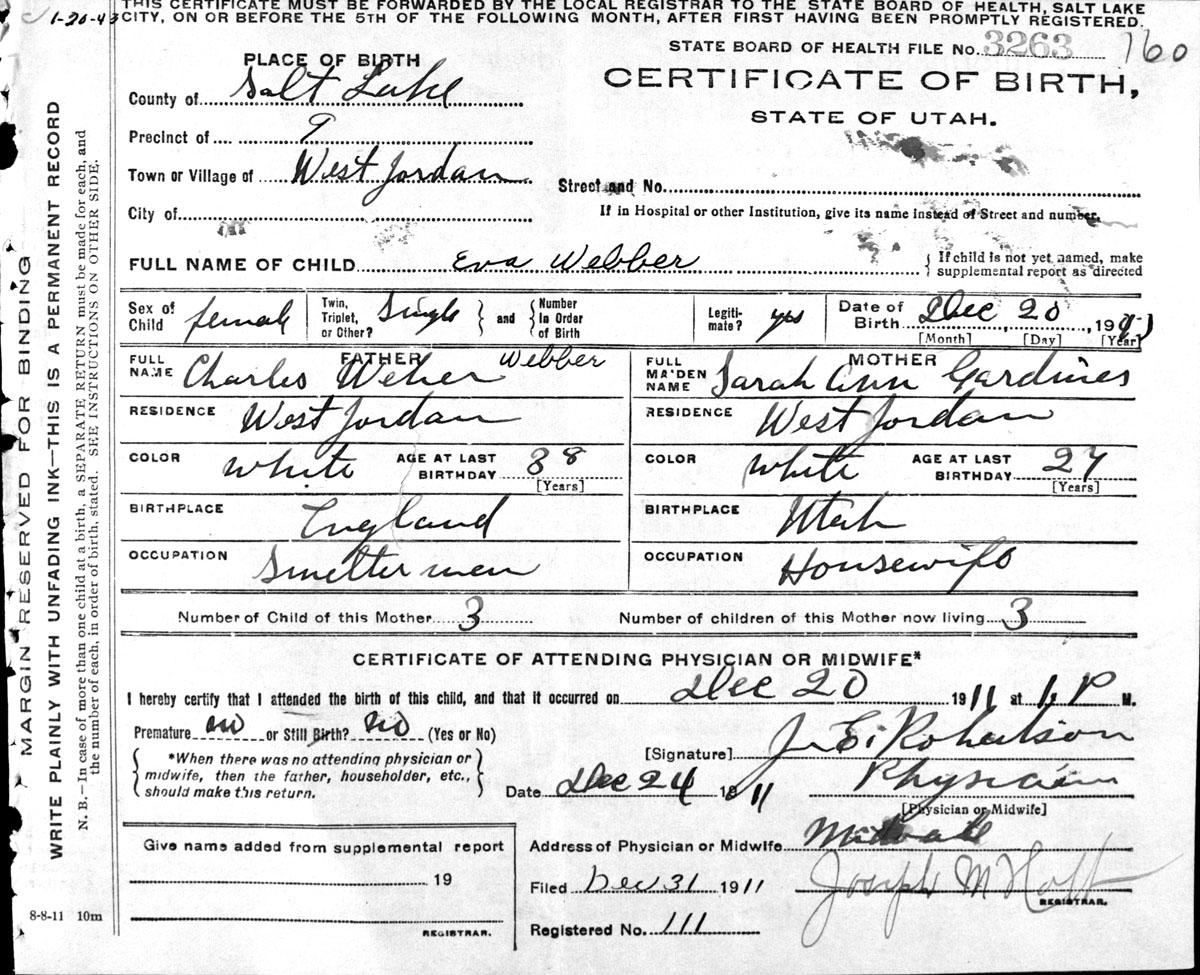 THIS CERTIFICATE MUST BE FORWARDED BY THE LOCAL REGISTRAR TO THE STATE BOARD OF HEALTH, SALT LAKE
1-20-43 CITY, ON OR BEFORE THE 5TH OF THE FOLLOWING MONTH, AFTER FIRST HAVING BEEN PROMPTLY REGISTERED.
STATE BOARD OF HEALTH FILE No. 3263 760
PLACE OF BIRTH
CERTIFICATE OF BIRTH,
STATE OF UTAH.
County of Salt Lake
Precinct of 9
Town or Village of West Jordan
Street and No.
City of
If in Hospital or other Institution, give its name instead of Street and number.
FULL NAME OF CHILD Eva Webber
{ If child is not yet named, make
supplemental report as directed
Sex of Child female
Twin, Triplet, or Other? Single } and { Number In Order of Birth
Legiti- mate? yes
Date of Birth Dec 20, 191
[Month] [Day] [Year]
FATHER
FULL NAME Charles Weber Webber
MOTHER
FULL MAIDEN NAME Sarah Ann Gardines
RESIDENCE West Jordan
RESIDENCE West Jordan
COLOR white AGE AT LAST BIRTHDAY 38
[Years]
COLOR white AGE AT LAST BIRTHDAY 27
[Years]
BIRTHPLACE England
BIRTHPLACE Utah
OCCUPATION Smelter men
OCCUPATION Housewife
Number of Child of this Mother 3
Number of children of this Mother now living 3
CERTIFICATE OF ATTENDING PHYSICIAN OR MIDWIFE*
I hereby certify that I attended the birth of this child, and that it occurred on Dec 20 1911 at 1, P M.
Premature no or Still Birth? no (Yes or No)
[Signature] J. E. Robertson
{ *When there was no attending physician or
midwife, then the father, householder, etc.,
should make this return. }
Date Dec 24 1911 Physician
[Physician or Midwife]
Address of Physician or Midwife Midvale
Give name added from supplemental report
19
REGISTRAR.
Filed Dec 31 1911 Joseph M Holt
REGISTRAR.
Registered No. 111
8-8-11 10m
MARGIN RESERVED FOR BINDING
WRITE PLAINLY WITH UNFADING INK—THIS IS A PERMANENT RECORD
N. B.—In case of more than one child at a birth, a SEPARATE RETURN must be made for each, and
the number of each, in order of birth, stated. SEE INSTRUCTIONS ON OTHER SIDE.